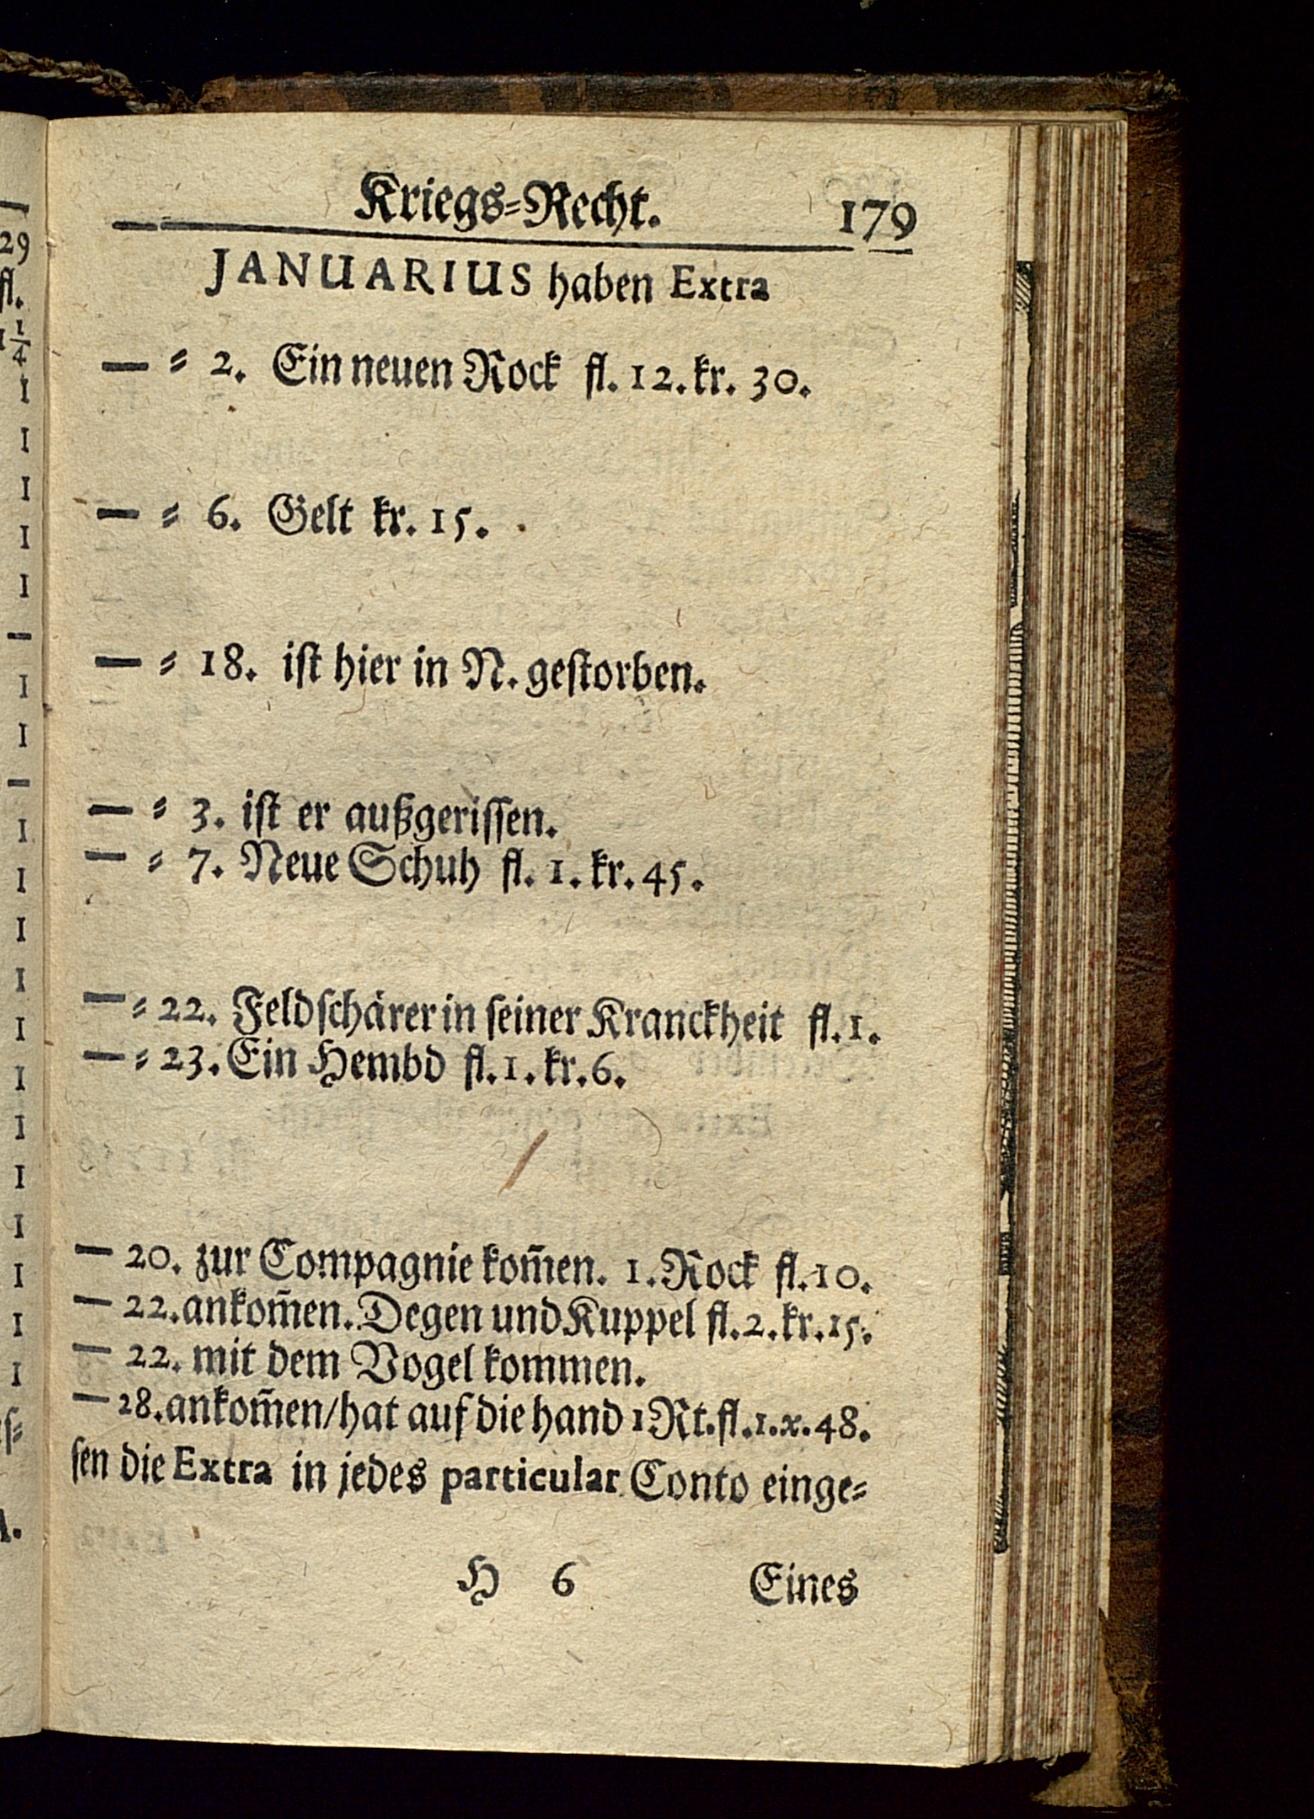 Kriegs-Recht. 179
JANUARIUS haben Extra
— = 2. Ein neuen Rock fl. 12. kr. 30.
— = 6. Gelt kr. 15.
— = 18. ist hier in N. gestorben.
— = 3. ist er außgerissen.
— = 7. Neue Schuh fl. 1. kr. 45.
— = 22. Feldschärer in seiner Kranckheit fl. 1.
— = 23. Ein Hembd fl. 1. kr. 6.
— 20. zur Compagnie kom̃en. 1. Rock fl. 10.
— 22. ankom̃en. Degen und Kuppel fl. 2. kr. 15.
— 22. mit dem Vogel kommen.
— 28. ankom̃en/ hat auf die hand 1 Rt. fl. 1. x. 48.
sen die Extra in jedes particular Conto einge=
H 6 Eines
29
fl.
1 1/4
1
1
1
1
1
—
1
1
—
1
1
1
1
1
1
1
1
1
1
1
1